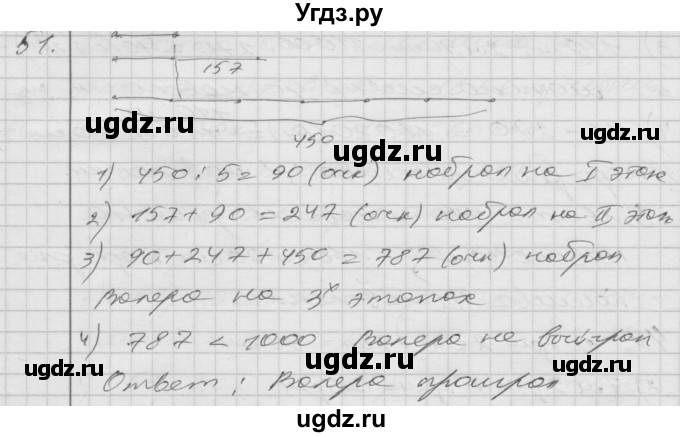 Угдз.ру
51.
157
450
1) 450 : 5 = 90 (очк) набрал на I этап
2) 157 + 90 = 247 (очк) набрал на II этап
3) 90 + 247 + 450 = 787 (очк) набрал
Валера на 3х этапах
4) 787 < 1000 Валера не выиграл
Ответ: Валера проиграл
ugdz.ru ugdz.ru
ugdz.ru ugdz.ru
ugdz.ru ugdz.ru
ugdz.ru